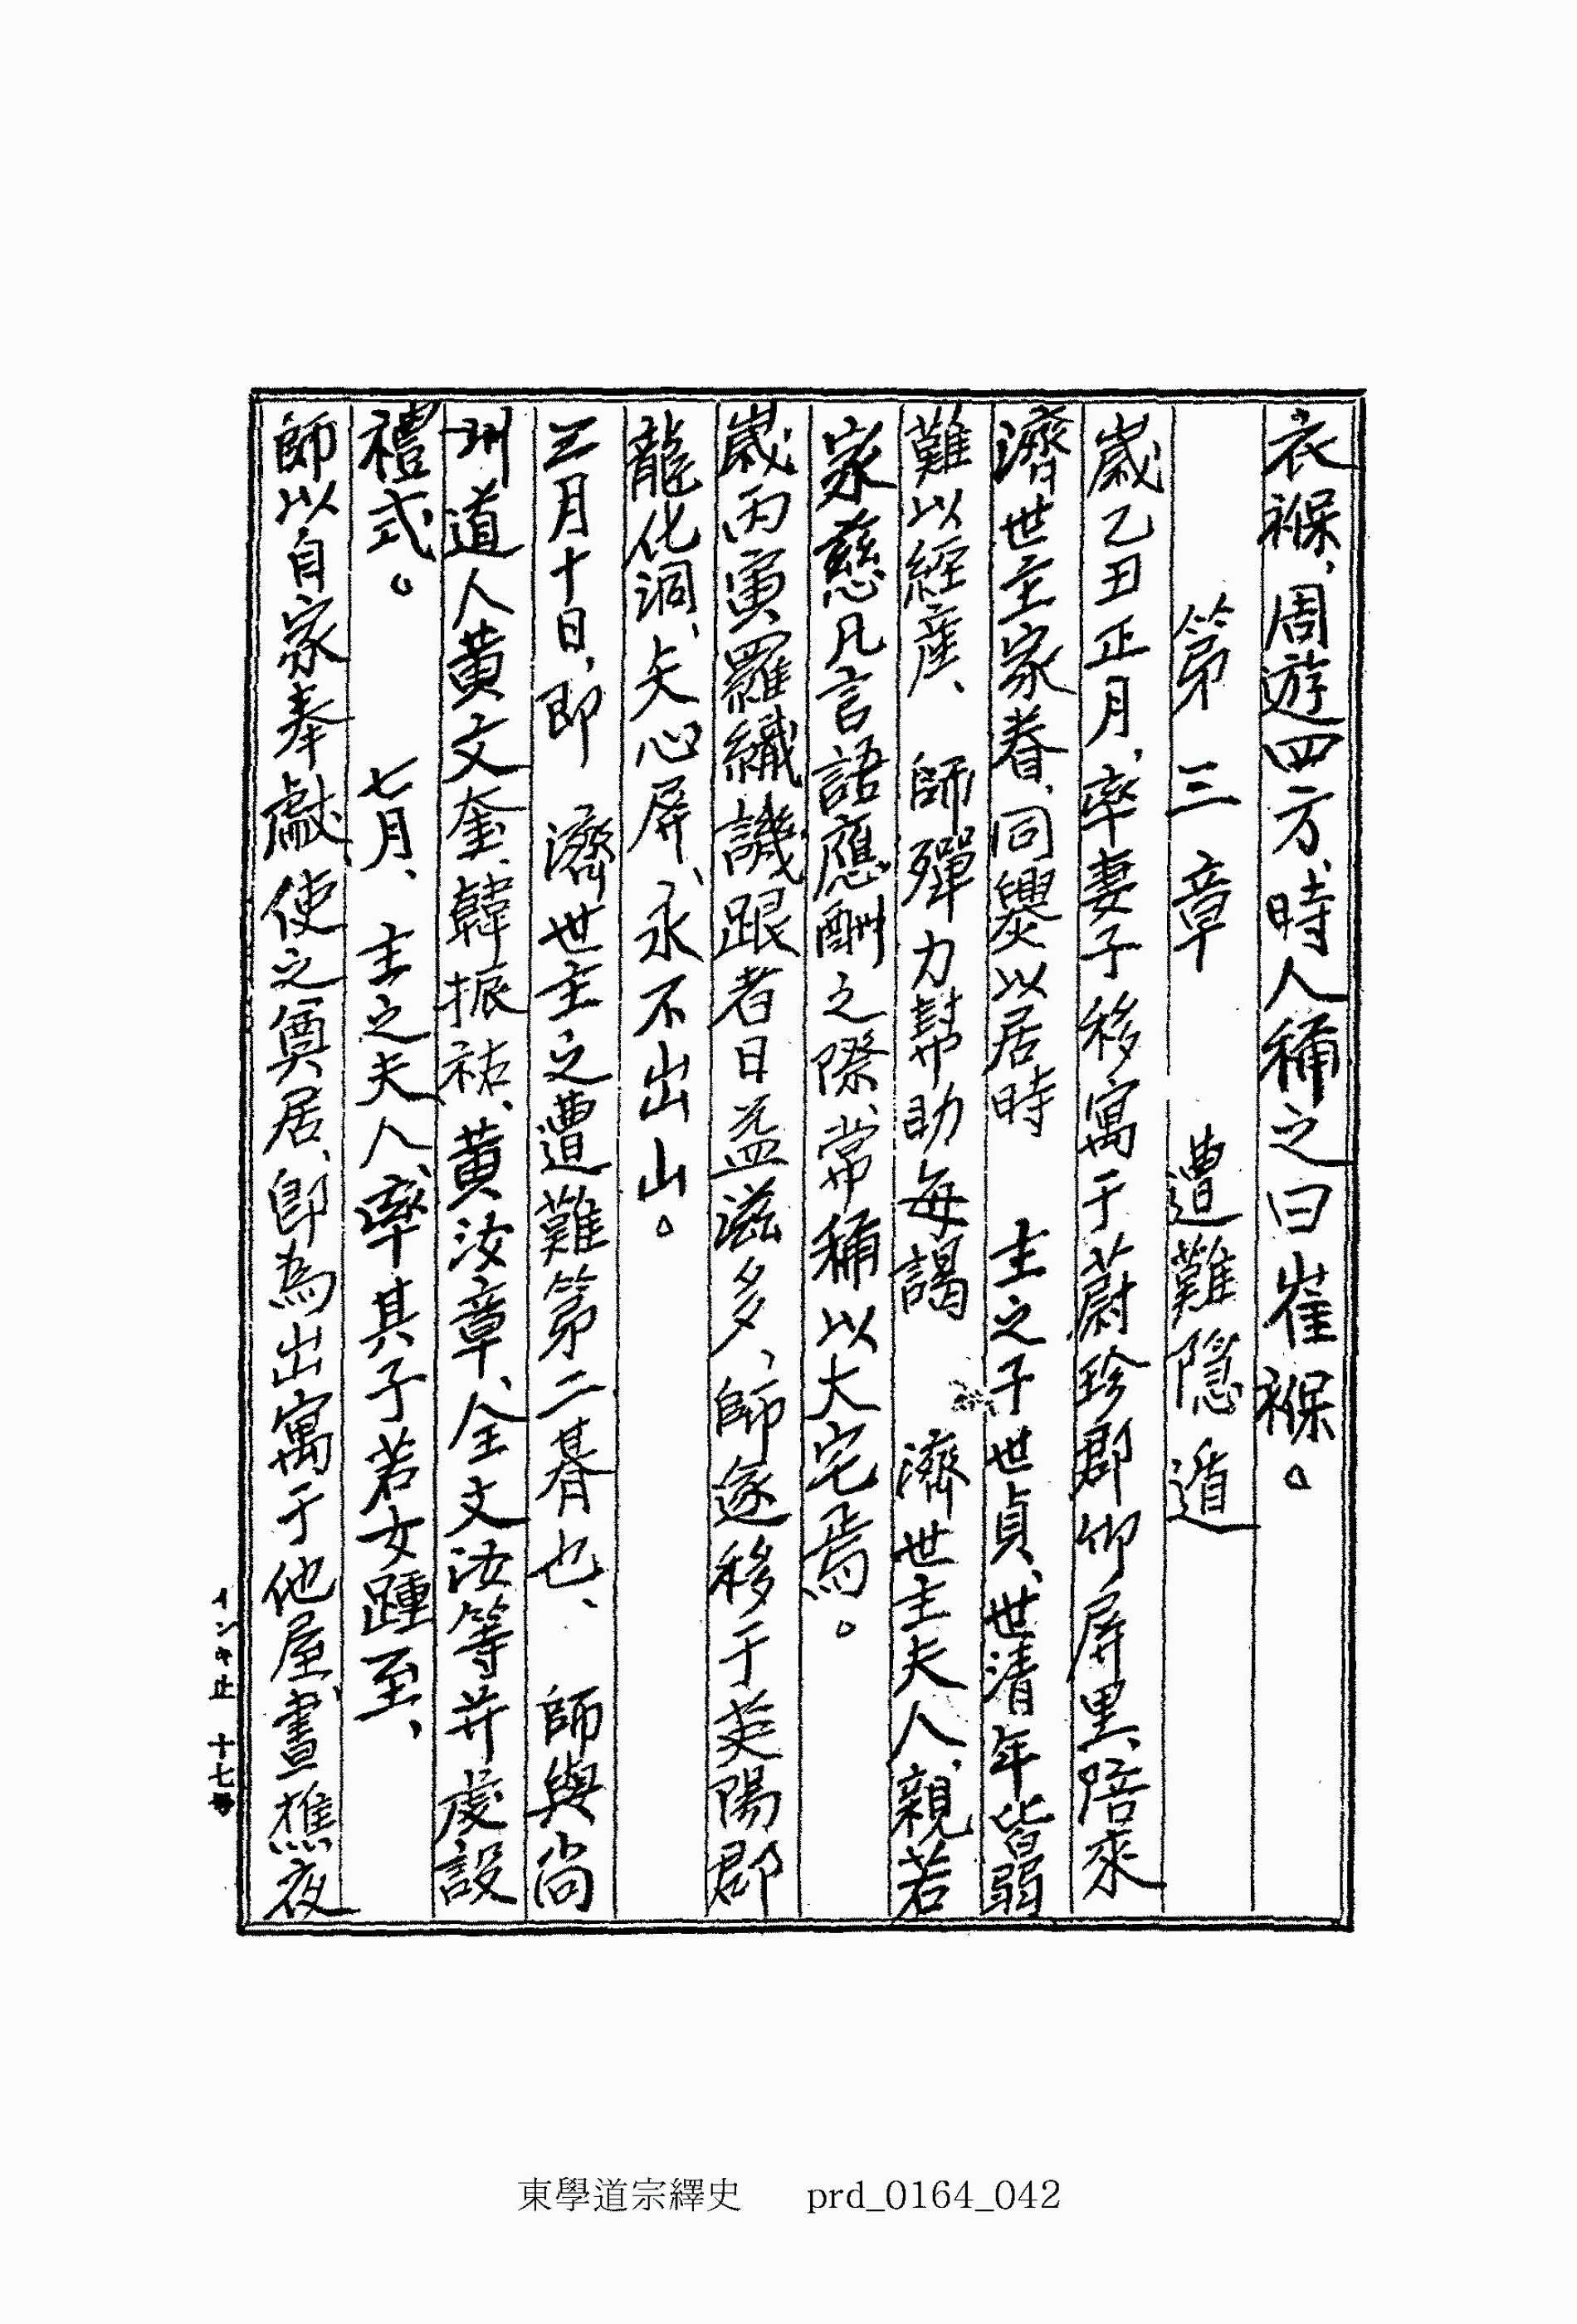 衣褓、周遊四方、時人稱之曰崔褓。
第三章　遭難隱遁
歲乙丑正月、率妻子移寓于蔚珍郡仰屛里、陪來
濟世主家眷、同爨以居時　主之子世貞、世淸年皆弱
難以經産、　師殫力幇助每謁　濟世主夫人、親若
家慈凡言語應酬之際、常稱以大宅焉。
歲丙寅羅織譏跟者日益滋多、師遂移于英陽郡
龍化洞、矢心屛、永不出山。
三月十日、卽　濟世主之遭難第二朞也、　師與尙
州道人黃文奎、韓振祐、黃汝章、全文汝等幷處設
禮式。　七月、　主之夫人、率其子若女踵至、
師以自家奉獻、使之奠居、卽爲出寓于他屋、晝樵夜
十七
東學道宗繹史　prd_0164_042